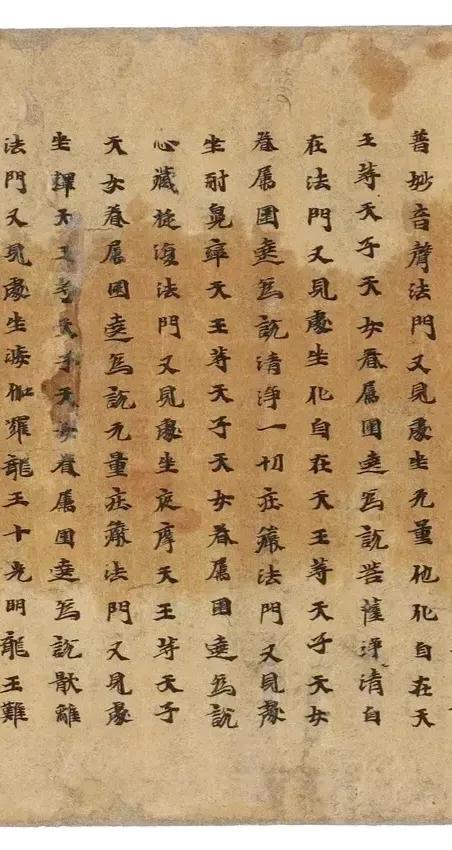 普妙音聲法門又見處坐无量他化自在天
王等天子天女眷属圍遶爲説菩薩淨清自
在法門又見處坐化自在天王等天子天女
眷属圍遶爲説清淨一切莊嚴法門又見處
坐耐兜率天王等天子天女眷属圍遶爲説
心藏旋復法門又見處坐夜摩天王等天子
天女眷属圍遶爲説无量莊嚴法門又見處
坐釋天王等天子天女眷属圍遶爲説散離
法門又見處坐娑伽羅龍王十光明龍王難